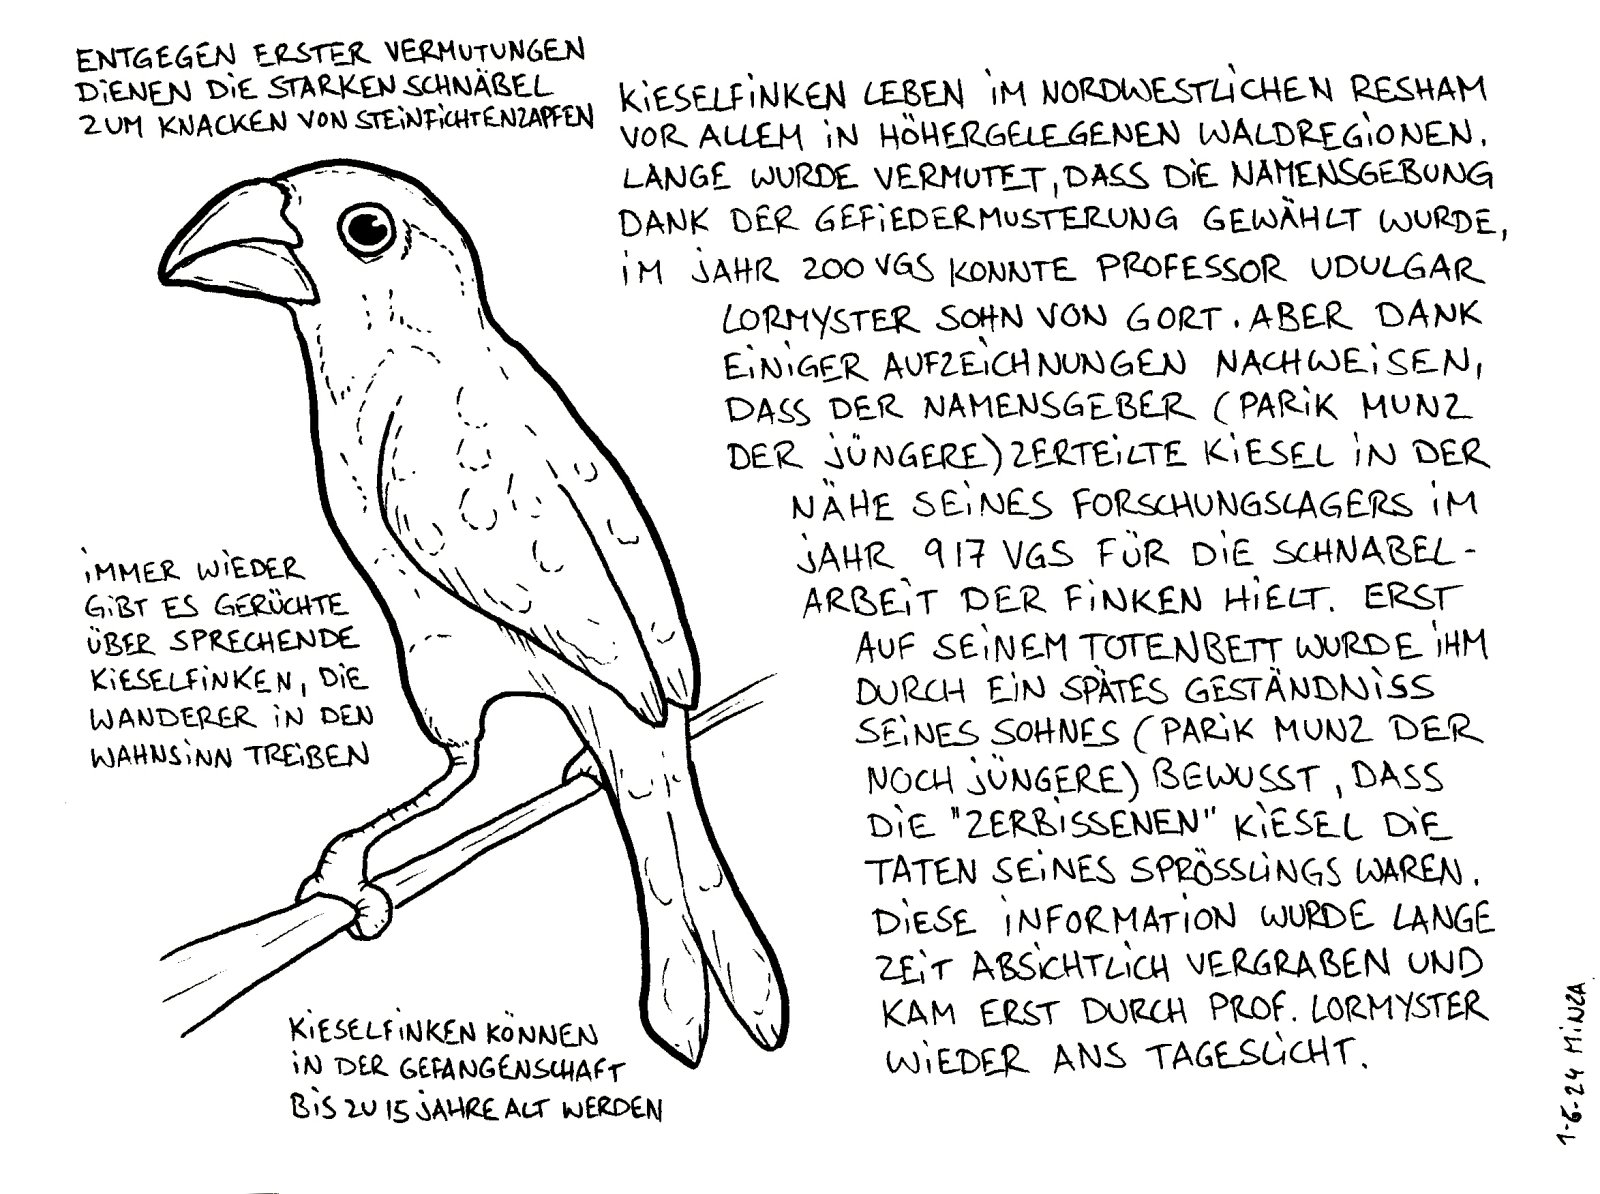 ENTGEGEN ERSTER VERMUTUNGEN
DIENEN DIE STARKEN SCHNÄBEL
ZUM KNACKEN VON STEINFICHTENZAPFEN
KIESELFINKEN LEBEN IM NORDWESTLICHEN RESHAM
VOR ALLEM IN HÖHERGELEGENEN WALDREGIONEN.
LANGE WURDE VERMUTET, DASS DIE NAMENSGEBUNG
DANK DER GEFIEDERMUSTERUNG GEWÄHLT WURDE,
IM JAHR 200 VGS KONNTE PROFESSOR UDULGAR
LORMYSTER SOHN VON GORT. ABER DANK
EINIGER AUFZEICHNUNGEN NACHWEISEN,
DASS DER NAMENSGEBER (PARIK MUNZ
DER JÜNGERE) ZERTEILTE KIESEL IN DER
NÄHE SEINES FORSCHUNGSLAGERS IM
JAHR 917 VGS FÜR DIE SCHNABEL-
ARBEIT DER FINKEN HIELT. ERST
AUF SEINEM TOTENBETT WURDE IHM
DURCH EIN SPÄTES GESTÄNDNISS
SEINES SOHNES (PARIK MUNZ DER
NOCH JÜNGERE) BEWUSST, DASS
DIE "ZERBISSENEN" KIESEL DIE
TATEN SEINES SPRÖSSLINGS WAREN.
DIESE INFORMATION WURDE LANGE
ZEIT ABSICHTLICH VERGRABEN UND
KAM ERST DURCH PROF. LORMYSTER
WIEDER ANS TAGESLICHT.
IMMER WIEDER
GIBT ES GERÜCHTE
ÜBER SPRECHENDE
KIESELFINKEN, DIE
WANDERER IN DEN
WAHNSINN TREIBEN
KIESELFINKEN KÖNNEN
IN DER GEFANGENSCHAFT
BIS ZU 15 JAHRE ALT WERDEN
1-6-24 MINZA